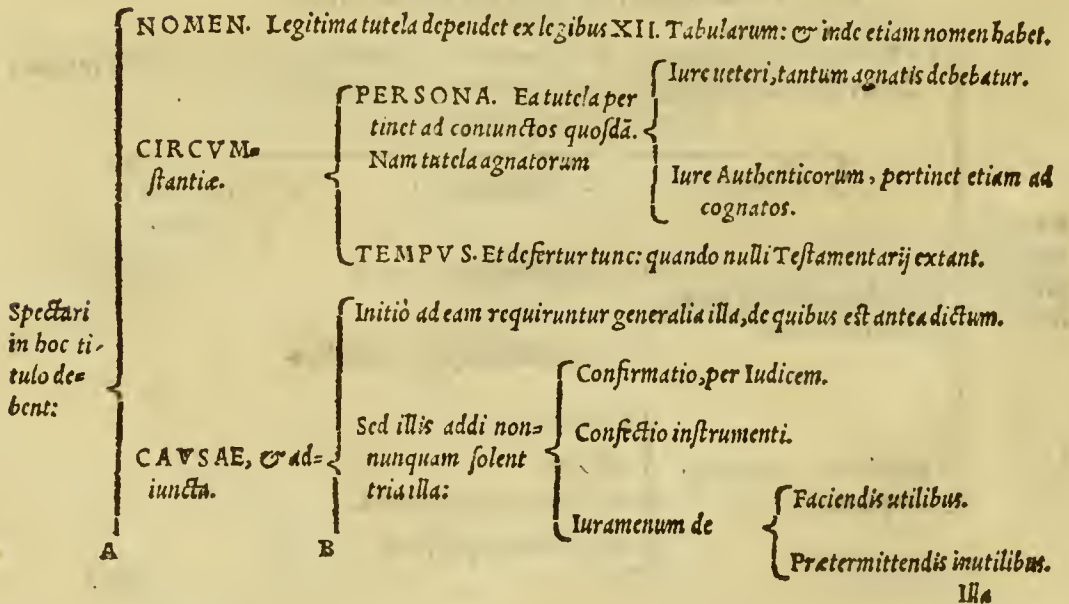 NOMEN. Legitima tutela dependet ex legibus XII. Tabularum: & inde etiam nomen habet.
Spectari
in hoc ti-
tulo de=
bent:
CIRCVM=
stantiæ.
PERSONA. Ea tutela per
tinet ad coniunctos quosdā.
Nam tutela agnatorum
Iure ueteri, tantum agnatis debebatur.
Iure Authenticorum, pertinet etiam ad
cognatos.
TEMPVS. Et defertur tunc: quando nulli Testamentarij extant.
CAVSAE, & ad=
iuncta.
Initiò ad eam requiruntur generalia illa, de quibus est antea dictum.
Sed illis addi non=
nunquam solent
tria illa:
Confirmatio, per Iudicem.
Confectio instrumenti.
Iuramenum de
Faciendis utilibus.
Prætermittendis inutilibus.
A
B
Illa